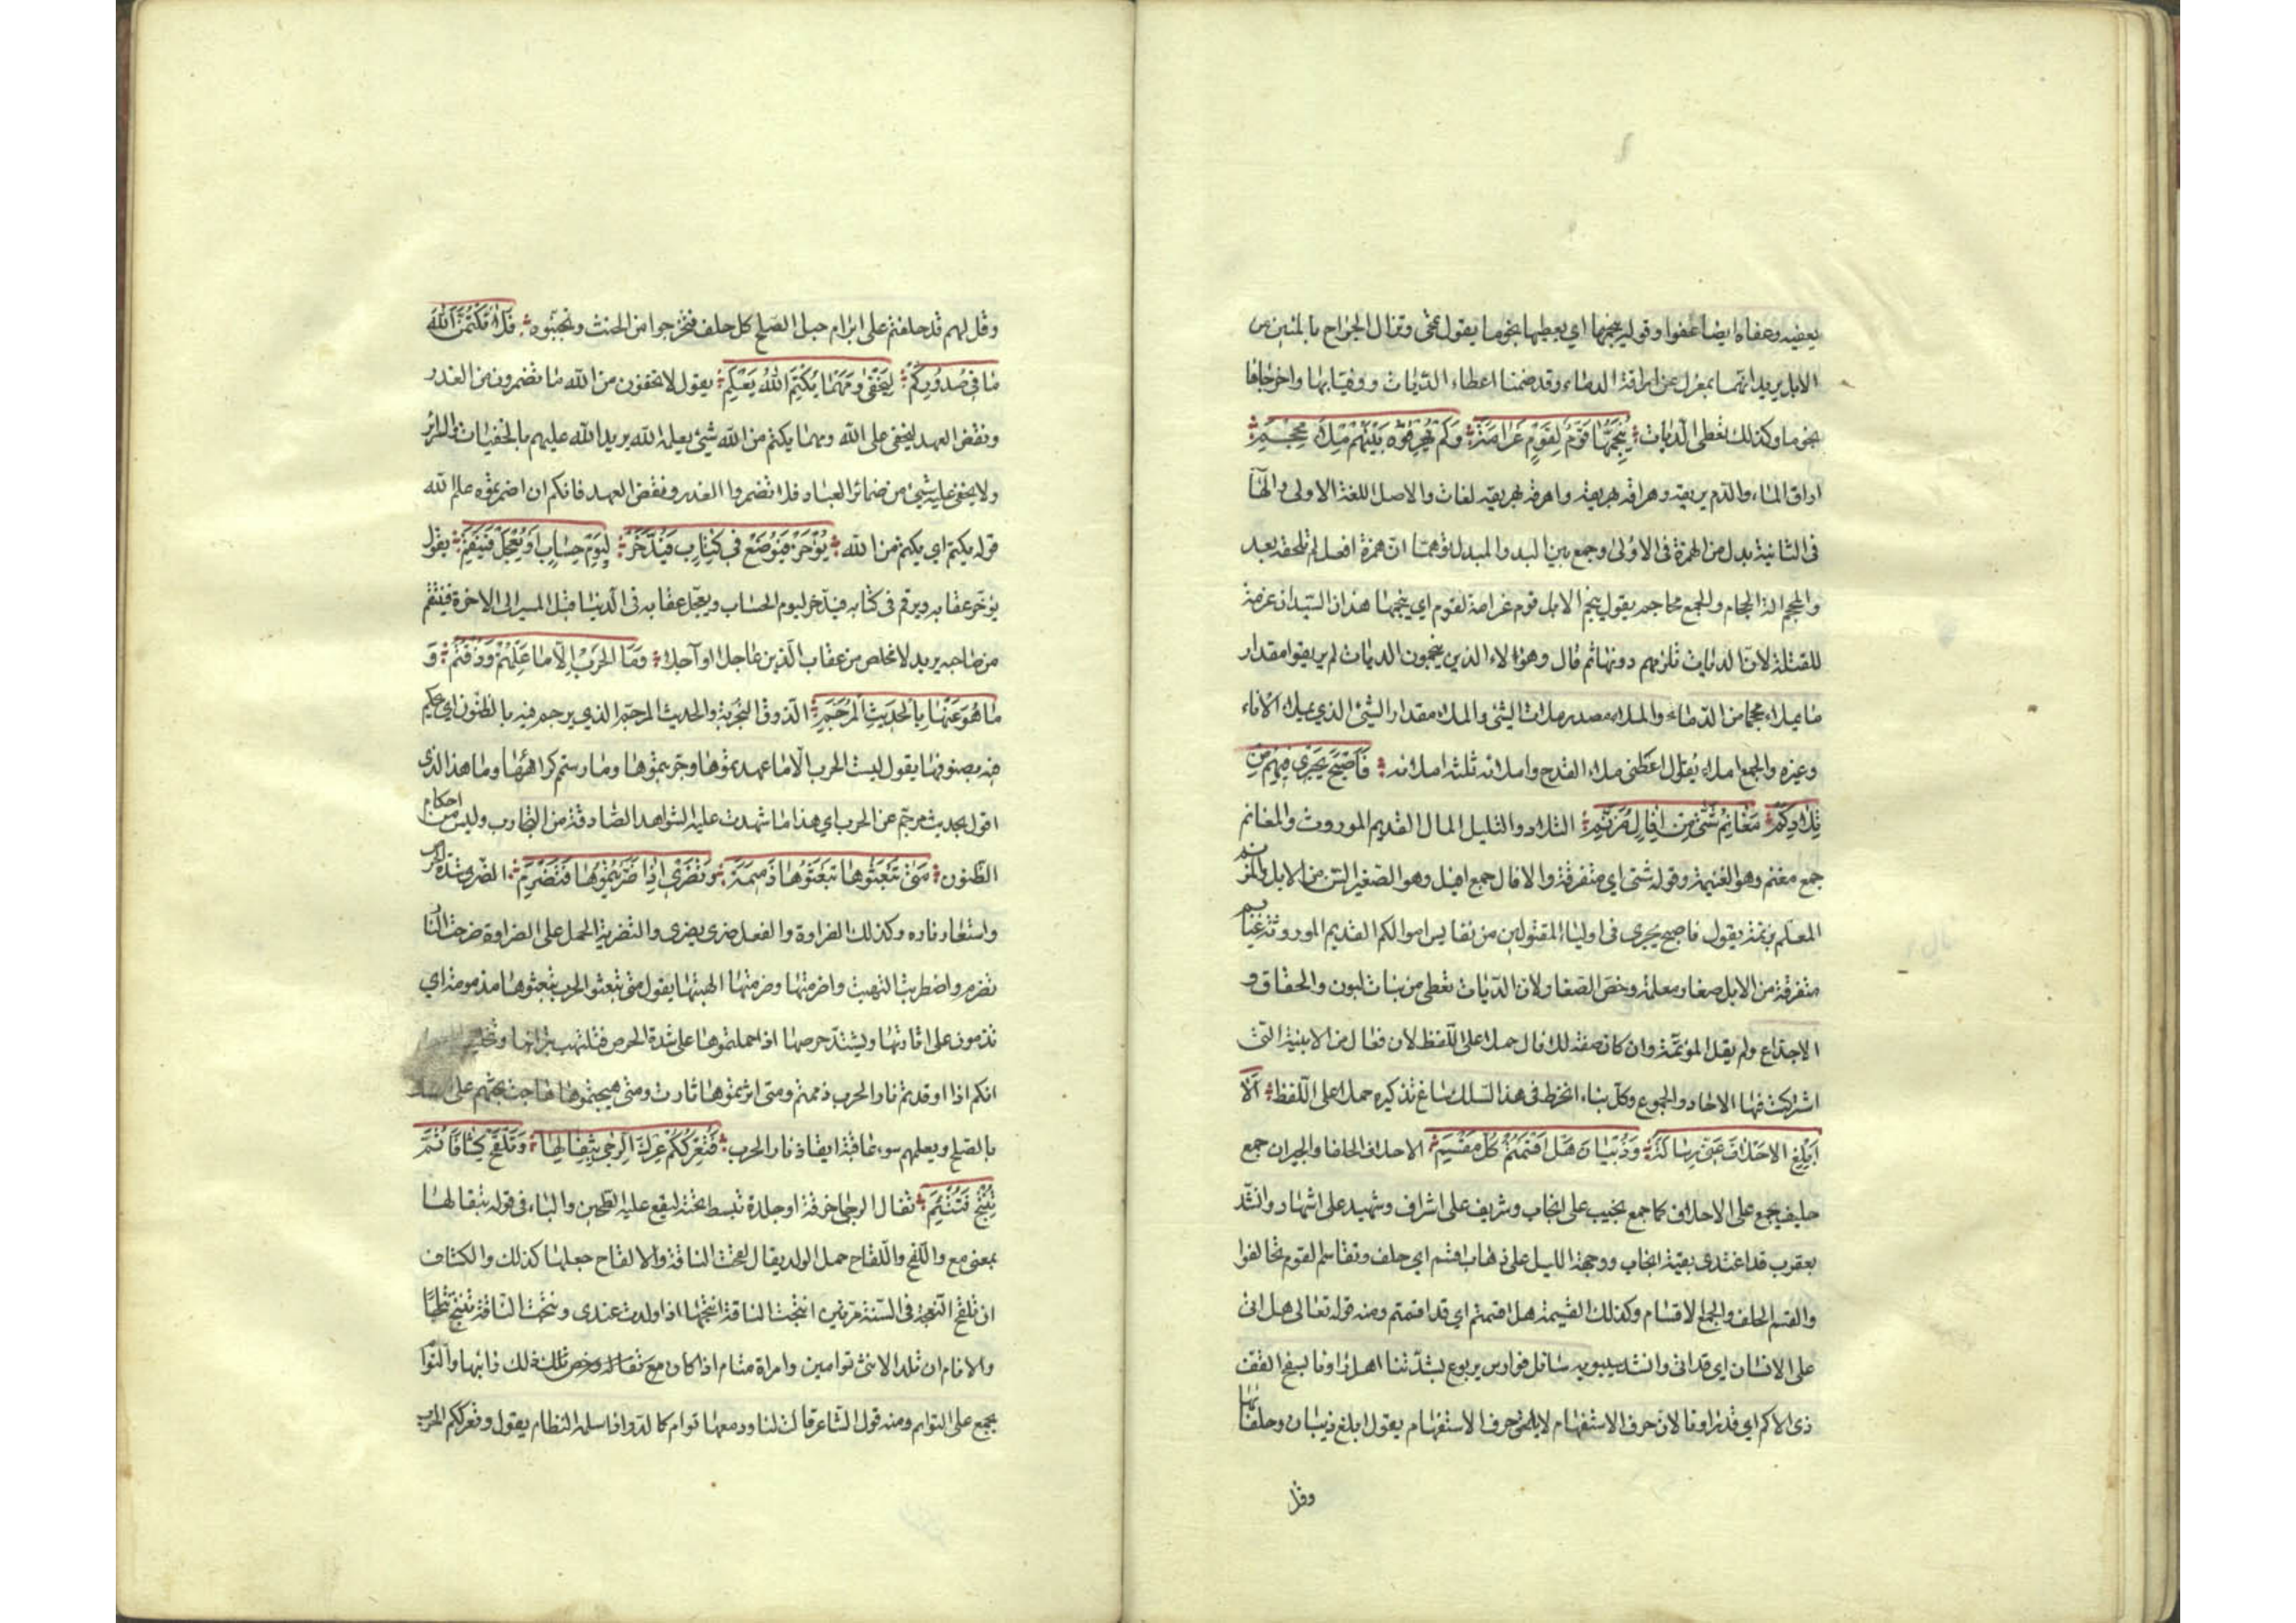 يعفيه وعفاه ايضا عفوا وقوله ينجمها اي يعطيها نجوما يقول تمحى وتزال الجراح بالمئين من
الابل يريد انهما بمعزل عن اراقة الدماء وقد ضمنا اعطاء الديات ووفيا بها واخرجاها
نجوما وكذلك تعطى الديات ؞ يُنَجِّمُهَا قَوْمٌ لِقَوْمٍ غَرَامَةً ؞ وَلَمْ يُهَرِيقُوا بَيْنَهُمْ مِلْءَ مِحْجَمِ ؞
اراق الماء والدم يريقه وهراقه يهريقه واهرقه يهريقه لغات والاصل اللغة الاولى والهآ
فى الثانية بدل من الهمزة فى الاولى وجمع بين البدل والمبدل توهما ان همزة افعل لم تلحقه بعد
والمحجم الة الحجام والجمع محاجم يقول ينجم الابل قوم غرامة لقوم اي ينجمها هذان السيدان غرامة
للقتلة لان الديات تلزمهم دونهما ثم قال وهؤلاء الذين ينجمون الديات لم يريقوا مقدار
ما يملاء محجما من الدماء والملاء مصدر ملات الشئ والملاء مقدار الشئ الذي يملاء الاناء
وغيره والجمع املاء يقال اعطنى ملاء القدح وملائه وثلثة املائه ؞ فَأَصْبَحَ يَجْرِي فِيهِمْ مِنْ
تِلَادِكُمْ ؞ مَغَانِمُ شَتَّى مِنْ اِفَالٍ مُزَنَّمِ ؞ التلاد والتليد المال القديم الموروث والمغانم
جمع مغنم وهو الغنيمة وقوله شتى اي متفرقة والافال جمع افيل وهو الصغير السن من الابل والمزنم
المعلم بزنمة يقول فاصبح يجرى فى اولياء المقتولين من نفايس اموالكم القديم الموروثة غنايم
متفرقة من الابل صغار معلمة وخص الصغار لان الديات تعطى من بنات لبون والحقاق و
الاجذاع ولم يقل المزنمة وان كان صفة للافال حملا على اللفظ لان فعال من الابنية التى
اشتركت فيها الاحاد والجموع وكل بناء انخرط فى هذا السلك ساغ تذكيره حملا على اللفظ ؞ اَلَا
اَبْلِغِ الاَحْلَافَ عَنِّي رِسَالَةً ؞ وَذُبْيَانَ هَلْ اَقْسَمْتُمُ كُلَّ مُقْسَمِ ؞ الاحلاف الحلفا والجيران جمع
حليف يجمع على الاحلاف كما جمع نجيب على انجاب وشريف على اشراف وشهيد على اشهاد وانشد
بعقرب قد اغتدى بفتية انجاب وجهمة الليل على ذهاب اقسم اي حلف وتقاسم القوم تحالفوا
والقسم الحلف والجمع الاقسام وكذلك القسيمة هل اقسمتم اي قد اقسمتم ومنه قوله تعالى هل اتى
على الانسان اي قد اتى وانشد سيبويه سائل فوارس يربوع بشدتنا اهل راونا بسفح القف
ذى الاكم اي قد راونا لان حرف الاستفهام لا يلحق حرف الاستفهام يقول ابلغ ذبيان وحلفائها
وقل
وقل لهم قد حلفتم على ابرام حبل الصلح كل حلف فتحرجوا من الحنث وتجنبوه ؞ فَلَا تَكْتُمُنَّ اللّٰهَ
مَا فِى صُدُورِكُمْ ؞ لِيَخْفٰى وَمَهْمَا يُكْتَمِ اللّٰهُ يَعْلَمِ ؞ يقول لا تخفون من الله ما تضمرون من الغدر
ونقض العهد ليخفى على الله ومهما يكتم من الله شئ يعلمه الله يريد ان الله عليهم بالخفيات والسرائر
ولا يخفى عليه شئ من ضمائر العباد فلا تضمروا الغدر ونقض العهد فانكم ان اضمرتموه علمه الله
قوله يكتم اي يكتم من الله ؞ يُؤَخَّرْ فَيُوضَعْ فِى كِتَابٍ فَيُدَّخَرْ ؞ لِيَوْمِ حِسَابٍ اَوْ يُعَجَّلْ فَيُنْقَمِ ؞ يقول
يؤخر عقابه ويرقم فى كتابه فيدخر ليوم الحساب ويعجل عقابه فى الدنيا قبل المسير الى الاخرة فينتقم
من صاحبه يريد لا مخلص من عقاب الذنب عاجلا او آجلا ؞ وَمَا الْحَرْبُ اِلَّا مَا عَلِمْتُمْ وَذُقْتُمُ ؞ وَ
مَا هُوَ عَنْهَا بِالْحَدِيثِ الْمُرَجَّمِ ؞ الذوق التجربة والحديث المرجم الذي يرجم فيه بالظنون اي يحكم
فيه بصنوفها يقول ليست الحرب الا ما عهدتموها وجربتموها ومارستم كراهتها وما هذا الذى
اقول بحديث مرجم عن الحرب اي هذا ما شهدت عليه الشواهد الصادقة من التجارب وليس من احكام
الظنون ؞ مَتٰى تَبْعَثُوهَا تَبْعَثُوهَا ذَمِيمَةً ؞ وَتَضْرَى اِذَا ضَرَّيْتُمُوهَا فَتَضْرَمِ ؞ الضرى شدة الحرب
واستعار ناره وكذلك الضراوة والفعل ضرى يضرى والتضرية الحمل على الضراوة ضرمت النار
تضرم واضطربت التهبت واضرمتها وضرمتها الهبتها يقول متى تبعثو الحرب تبعثوها مذمومة اي
تذمون على اثارتها ويشتد حرصها اذا حملتموها على شدة الحرص فتلتهب نيرانها
انكم اذا اوقدتم نار الحرب ذممتم ومتى اثرتموها ثارت ومتى هيجتموها هاجت يحثهم على
بالصلح ويعلمهم سوء عاقبة ايقاد نار الحرب ؞ فَتَعْرُكُكُمْ عَرْكَ الرَّحٰى بِثِفَالِهَا ؞ وَتَلْقَحْ كِشَافًا ثُمَّ
تُنْتَجْ فَتُتْئِمِ ؞ ثفال الرحى خرقة او جلدة تبسط تحته ليقع عليه الطحين والباء فى قوله بثفالها
بمعنى مع واللقح واللقاح حمل الولد يقال لقحت الناقة والالقاح جعلها كذلك والكشاف
ان تلقح النعجة فى السنة مرتين انتجت الناقة انتاجها اذا ولدت عندى ونتجت الناقة تنتج نتاجا
والاتآم ان تلد الانثى توامين وامراة متئام اذا كان
يجمع على التوام ومنه قول الشاعر قالت لنا ودمعها توام كالدر اذا سلمه النظام يقول وتعرككم الحرب